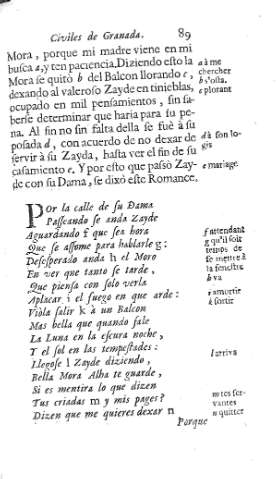 Civiles de Granada. 89
Mora, porque mi madre viene en mi
busca a, y ten paciencia. Diziendo esto la
Mora se quitò b del Balcon llorando c,
dexando al valeroso Zayde en tinieblas,
ocupado en mil pensamientos, sin sa-
berse determinar que haria para su pe-
na. Al fin no sin falta della se fuè à su
posada d, con acuerdo de no dexar de
servir à su Zayda, hasta ver el fin de su
casamiento e. Y por esto que passò Zay-
de con su Dama, se dixò este Romance.
a à me
chercher
b s'osta.
c plorant
d à son lo-
gis
e mariage
POr la calle de su Dama
Passeando se anda Zayde
Aguardando f que sea hora
Que se assome para hablarle g:
Desesperado anda h el Moro
En ver que tanto se tarde,
Que piensa con solo verla
Aplacar i el fuego en que arde:
Viola salir k à un Balcon
Mas bella que quando sale
La Luna en la escura noche,
Y el sol en las tempestades:
Llegose l Zayde diziendo,
Bella Mora Alha te guarde,
Si es mentira lo que dizen
Tus criadas m y mis pages?
Dizen que me quieres dexar n
f attendant
g qu'il soit
temps de
se mettre à
la fenestre
h va
i amortir
k sortir
l arriva
m tes ser-
vantes
n quitter
Porque